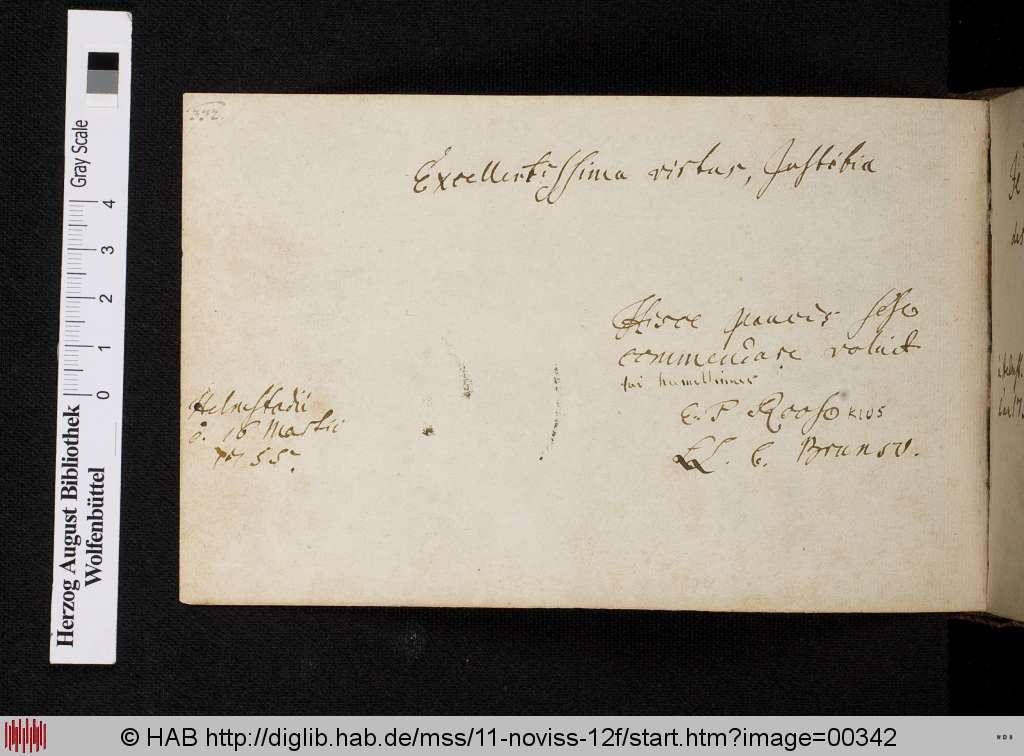 332.
Excellentissima virtus, Justitia
Hisce paucis sese
commendare voluit
humillimus
E. P. KIUS
LL. C. Brunsv.
Helmstadii
d. 16 Martii
1755.
Herzog August Bibliothek
Wolfenbüttel
Gray Scale
0 1 2 3 4
© HAB http://diglib.hab.de/mss/11-noviss-12f/start.htm?image=00342